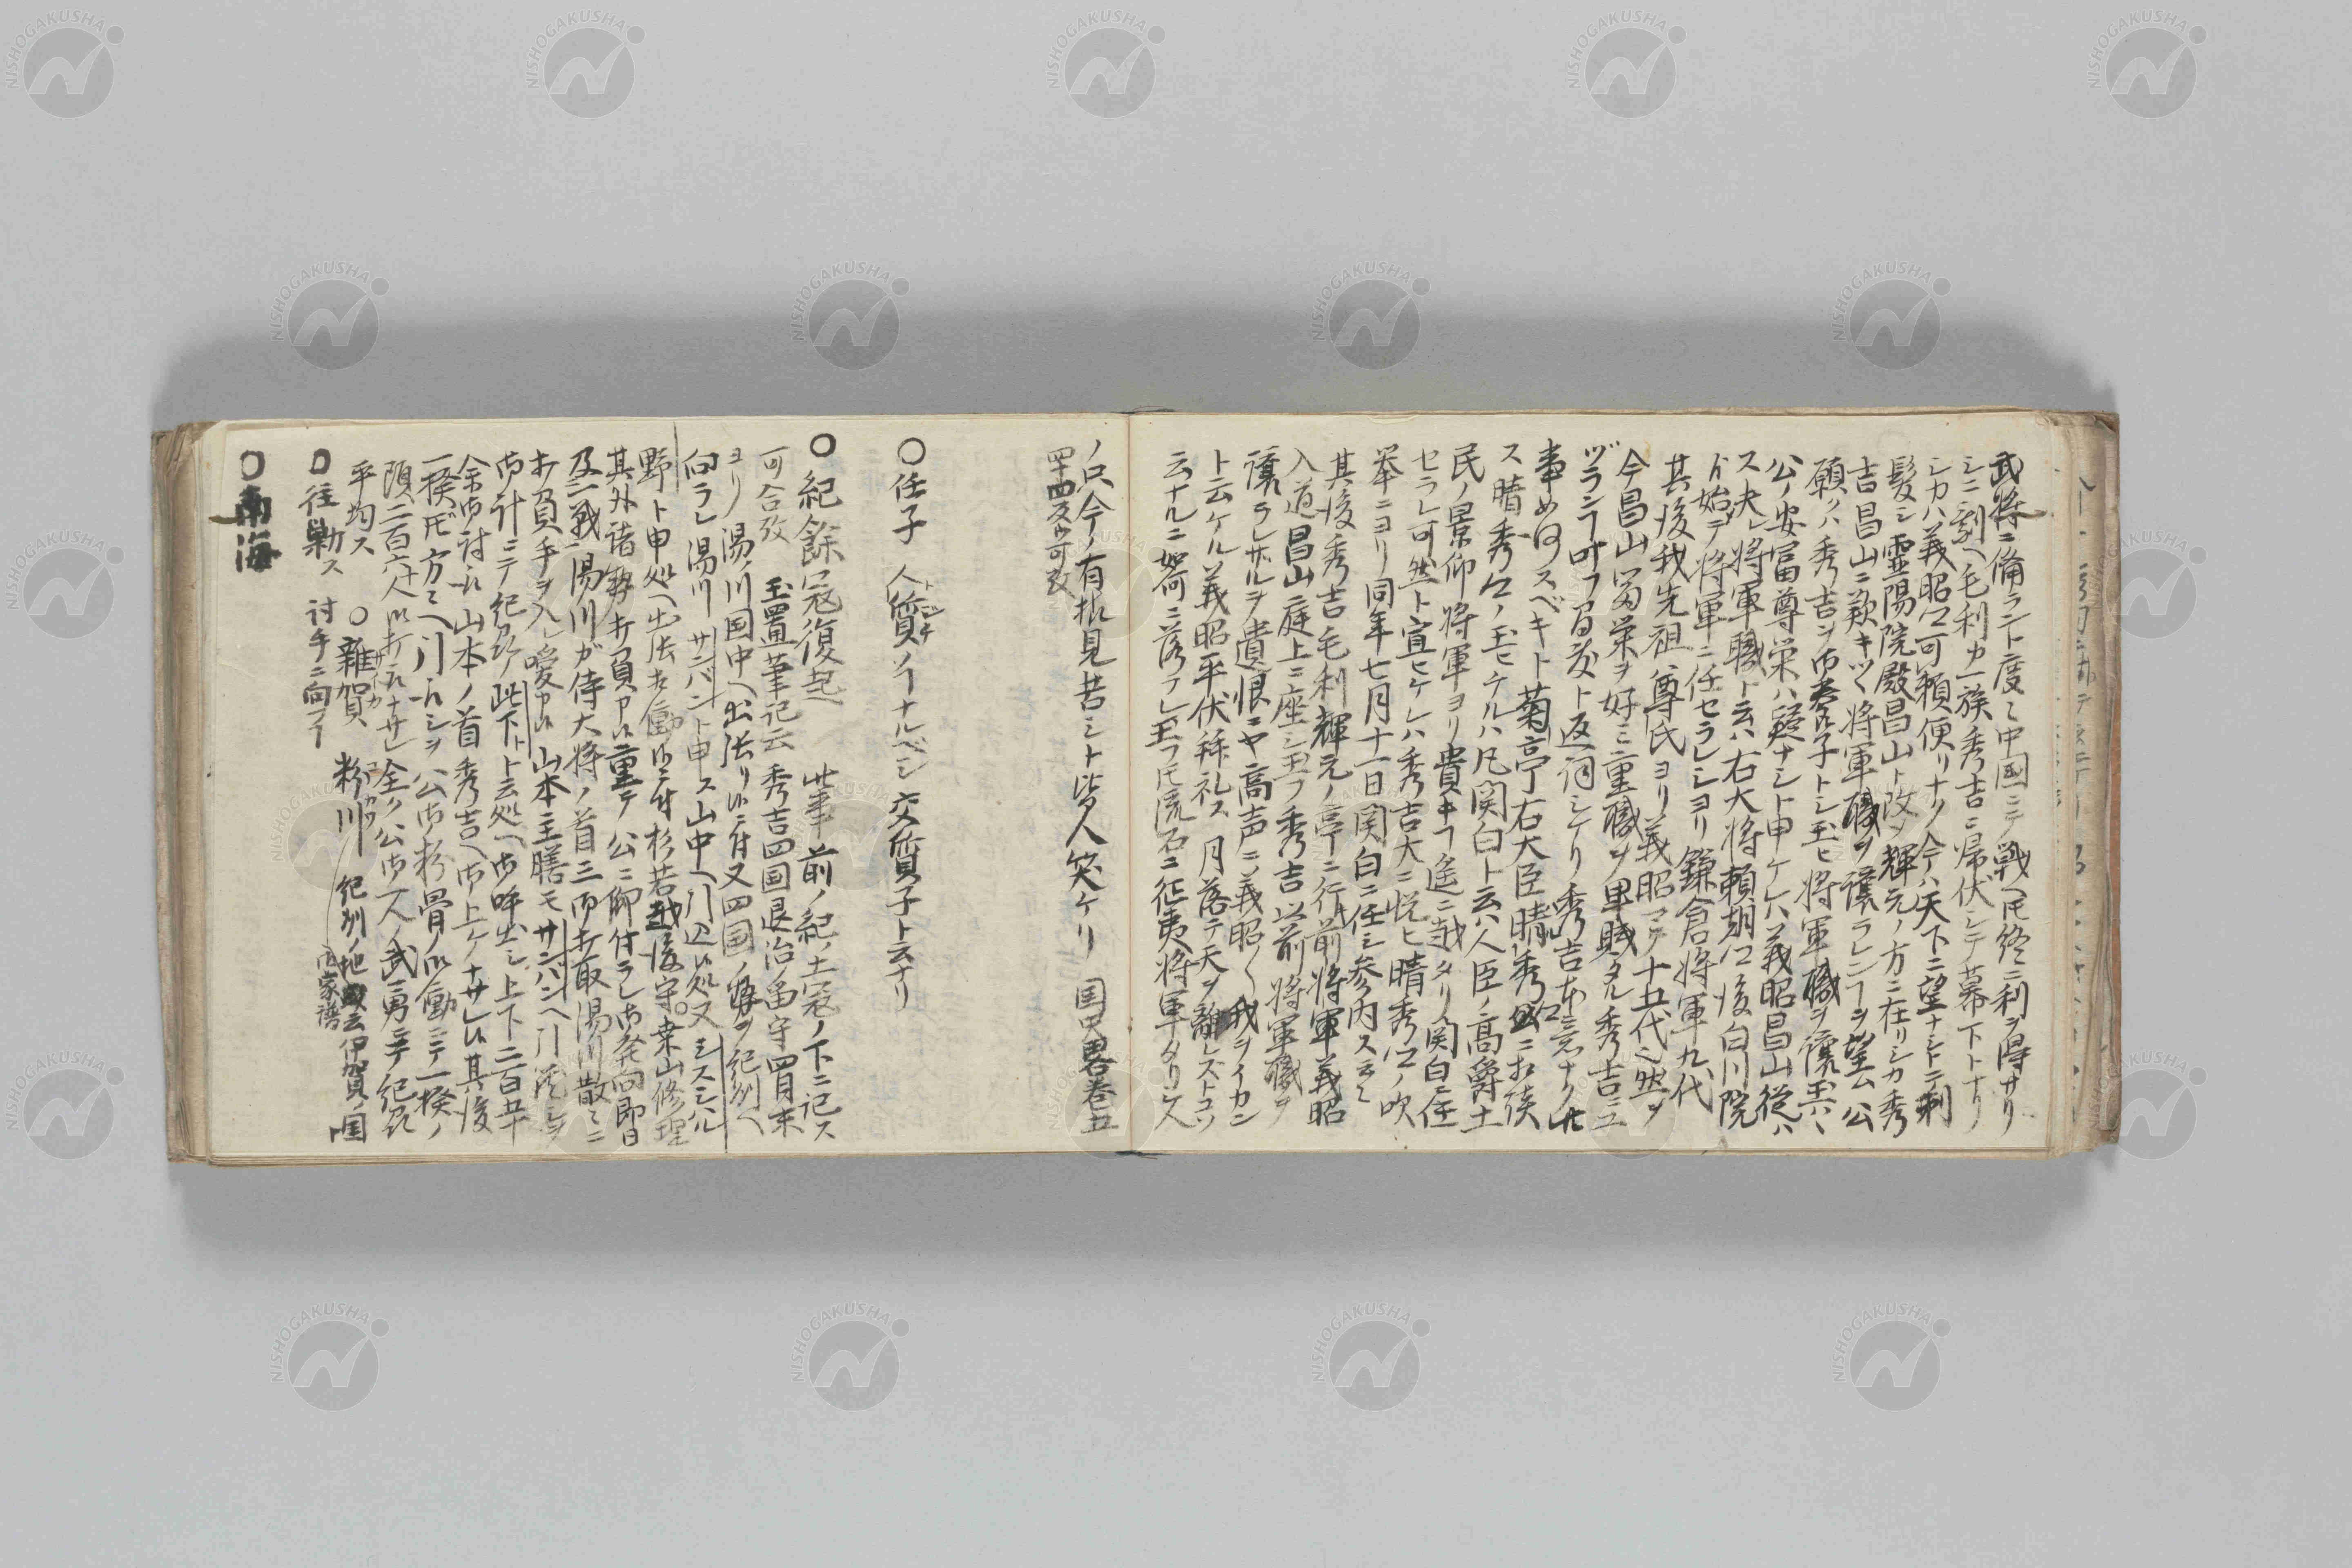 武将ニ備ラント度々中国ニテ戦ヘ圧終ニ利ヲ得サリ
シニ剰ヘ毛利カ一族秀吉ニ帰伏シテ幕下トナリ
シカハ義昭公可頼便リナク今ハ天下ニ望ナシトニ剃
髪シ霊陽院殿昌山ト改メ輝元ノ方ニ在リシカ秀
吉昌山ニ歎キツヽ将軍職ヲ譲ラレンヿヲ望ム公
願クハ秀吉ヲ御養子トシ玉ヒ将軍職ヲ譲玉ハヽ
公ノ安冨尊栄ハ疑ナシト申ケレハ義昭昌山従ハ
ス夫レ将軍職ト云ハ右大将頼朝公後白川院
ノ始テ将軍ニ任セラレシヨリ鎌倉将軍九代
其後我先祖尊氏ヨリ義昭マテ十五代也然ヲ
今昌山富栄ヲ好ミ重職ヲ卑賎タル秀吉ニユ
ヅランヿ叶フ間敷ト返詞シケリ秀吉本意ナク此
事如何スベキト菊亭右大臣晴秀公ニ相談
ス晴秀公ノ玉ヒケルハ凡関白ト云ハ人臣ノ高爵士
民ノ景仰将軍ヨリ貴キヿ遙ニ越タリ関白ニ任
セラレ可然ト宣ヒケレハ秀吉大ニ悦ヒ晴秀公ノ吹
挙ニヨリ同年七月十一日関白ニ任シ参内ス云々
其後秀吉毛利輝元ノ亭ニ行前将軍義昭
入道昌山庭上ニ座シ玉フ秀吉以前将軍職ヲ
譲ラレザルヲ遺恨ニヤ高声ニ義昭〱我ヲイカン
ト云ケル義昭平伏拝礼ス月落テ天ヲ離レストコソ
云ナルニ如何ニ落テレ玉フ圧流石ニ征夷将軍タリシ人
ノ只今ノ有状見苦シト皆人笑ケリ 国畧巻五
四十四及可攷
○任子 人質ノヿナルベシ交質子ト云ナリ
トジチ
○紀餘冦復起 此事前ノ紀ノ土冦ノ下ニ記ス
可合攷 玉置筆記云秀吉四国退治ノ留守四月末
ヨリ湯ノ川国中ヘ出張リ候ニ付又四国ノ勢ヲ紀州ヘ
向ラレ湯川サンバント申ス山中ヘ引込候処又ミスシハル
野ト申処ヘ出張相働候ニ付杉若越後守桒山修理
其外諸勢相負申候重テ公ニ仰付ラレ御発向即日
及二戦湯川が侍大将ノ首三御打取湯川散々ニ
相負手ヲ入レ噯申候山本主膳モサンバンヘ引
御計ニテ紀州ノ此下ト云処ヘ御呼出シ上下二百五十
余御討候山本ノ首秀吉ヘ御上ケナサレ候其後
一揆圧方々ヘ引候シヲ公御粉骨ノ御働ニテ一揆ノ
頭二百六十人御打候ナサレ全ク公御一人ノ武勇ニテ紀州
平均ス ○雑賀 粉川 紀州ノ地或云伊賀ノ国
サイカ コカワ
御家譜
○往勦ス 討手ニ向フヿ
○南海